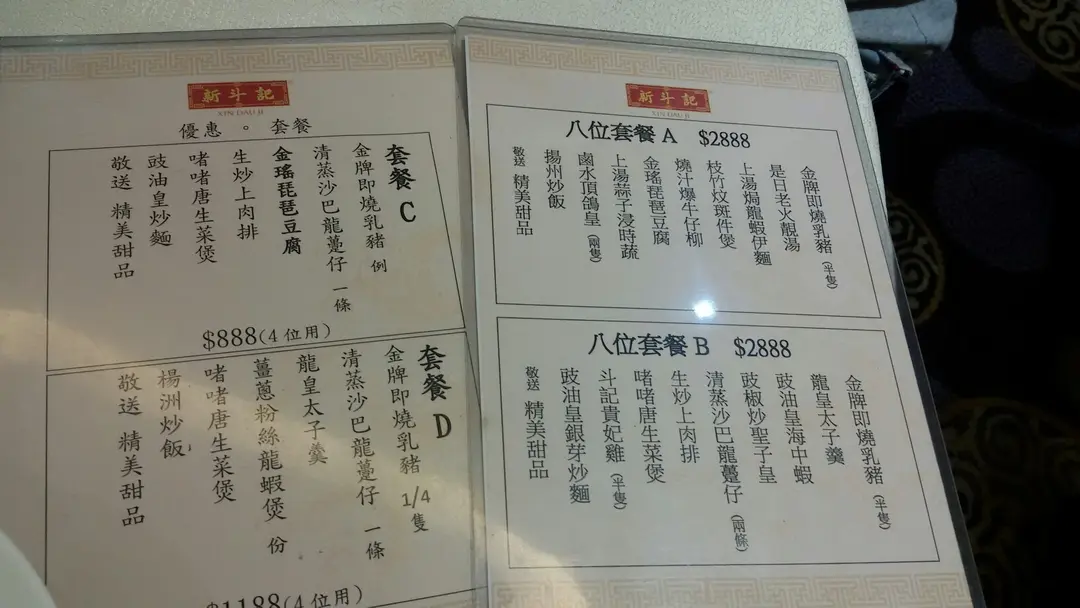 新斗記
XIN DAU JI
優惠。套餐
套餐 C
金牌即燒乳豬 例
清蒸沙巴龍躉仔 一條
金瑤琵琶豆腐
生炒上肉排
啫啫唐生菜煲
豉油皇炒麵
敬送 精美甜品
$888(4 位用)
套餐 D
金牌即燒乳豬 1/4 隻
清蒸沙巴龍躉仔 一條
龍皇太子羹
薑蔥粉絲龍蝦煲 份
啫啫唐生菜煲
楊洲炒飯
敬送 精美甜品
$1188(4 位用)
新斗記
XIN DAU JI
八位套餐 A $2888
金牌即燒乳豬 (半隻)
是日老火靚湯
上湯焗龍蝦伊麵
枝竹炆斑件煲
燒汁爆牛仔柳
金瑤琵琶豆腐
上湯蒜子浸時蔬
鹵水頂鴿皇 (兩隻)
揚州炒飯
敬送 精美甜品
八位套餐 B $2888
金牌即燒乳豬 (半隻)
龍皇太子羹
豉油皇海中蝦
豉椒炒聖子皇
清蒸沙巴龍躉仔 (兩條)
生炒上肉排
啫啫唐生菜煲
斗記貴妃雞 (半隻)
豉油皇銀芽炒麵
敬送 精美甜品